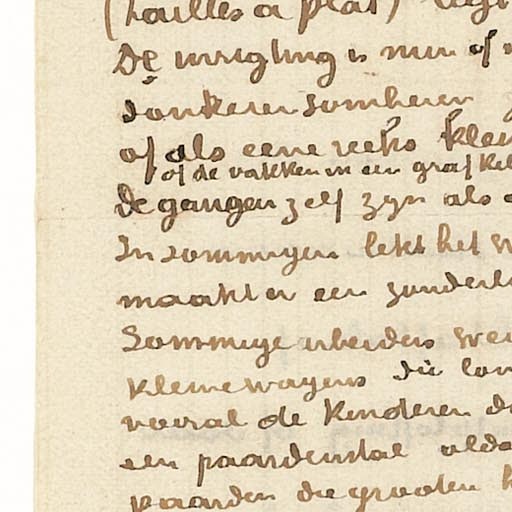 (tailles a plat)
De inrigting is min of
donkerer somberen
of als eene reeks
of de vakken in een graf kel
De gangen zelf zyn als
In sommigen lekt het
maakt er een zonderl
Sommige arbeiders
kleine wagens die
vooral de kinderen
een paardenstal
paarden die grooten